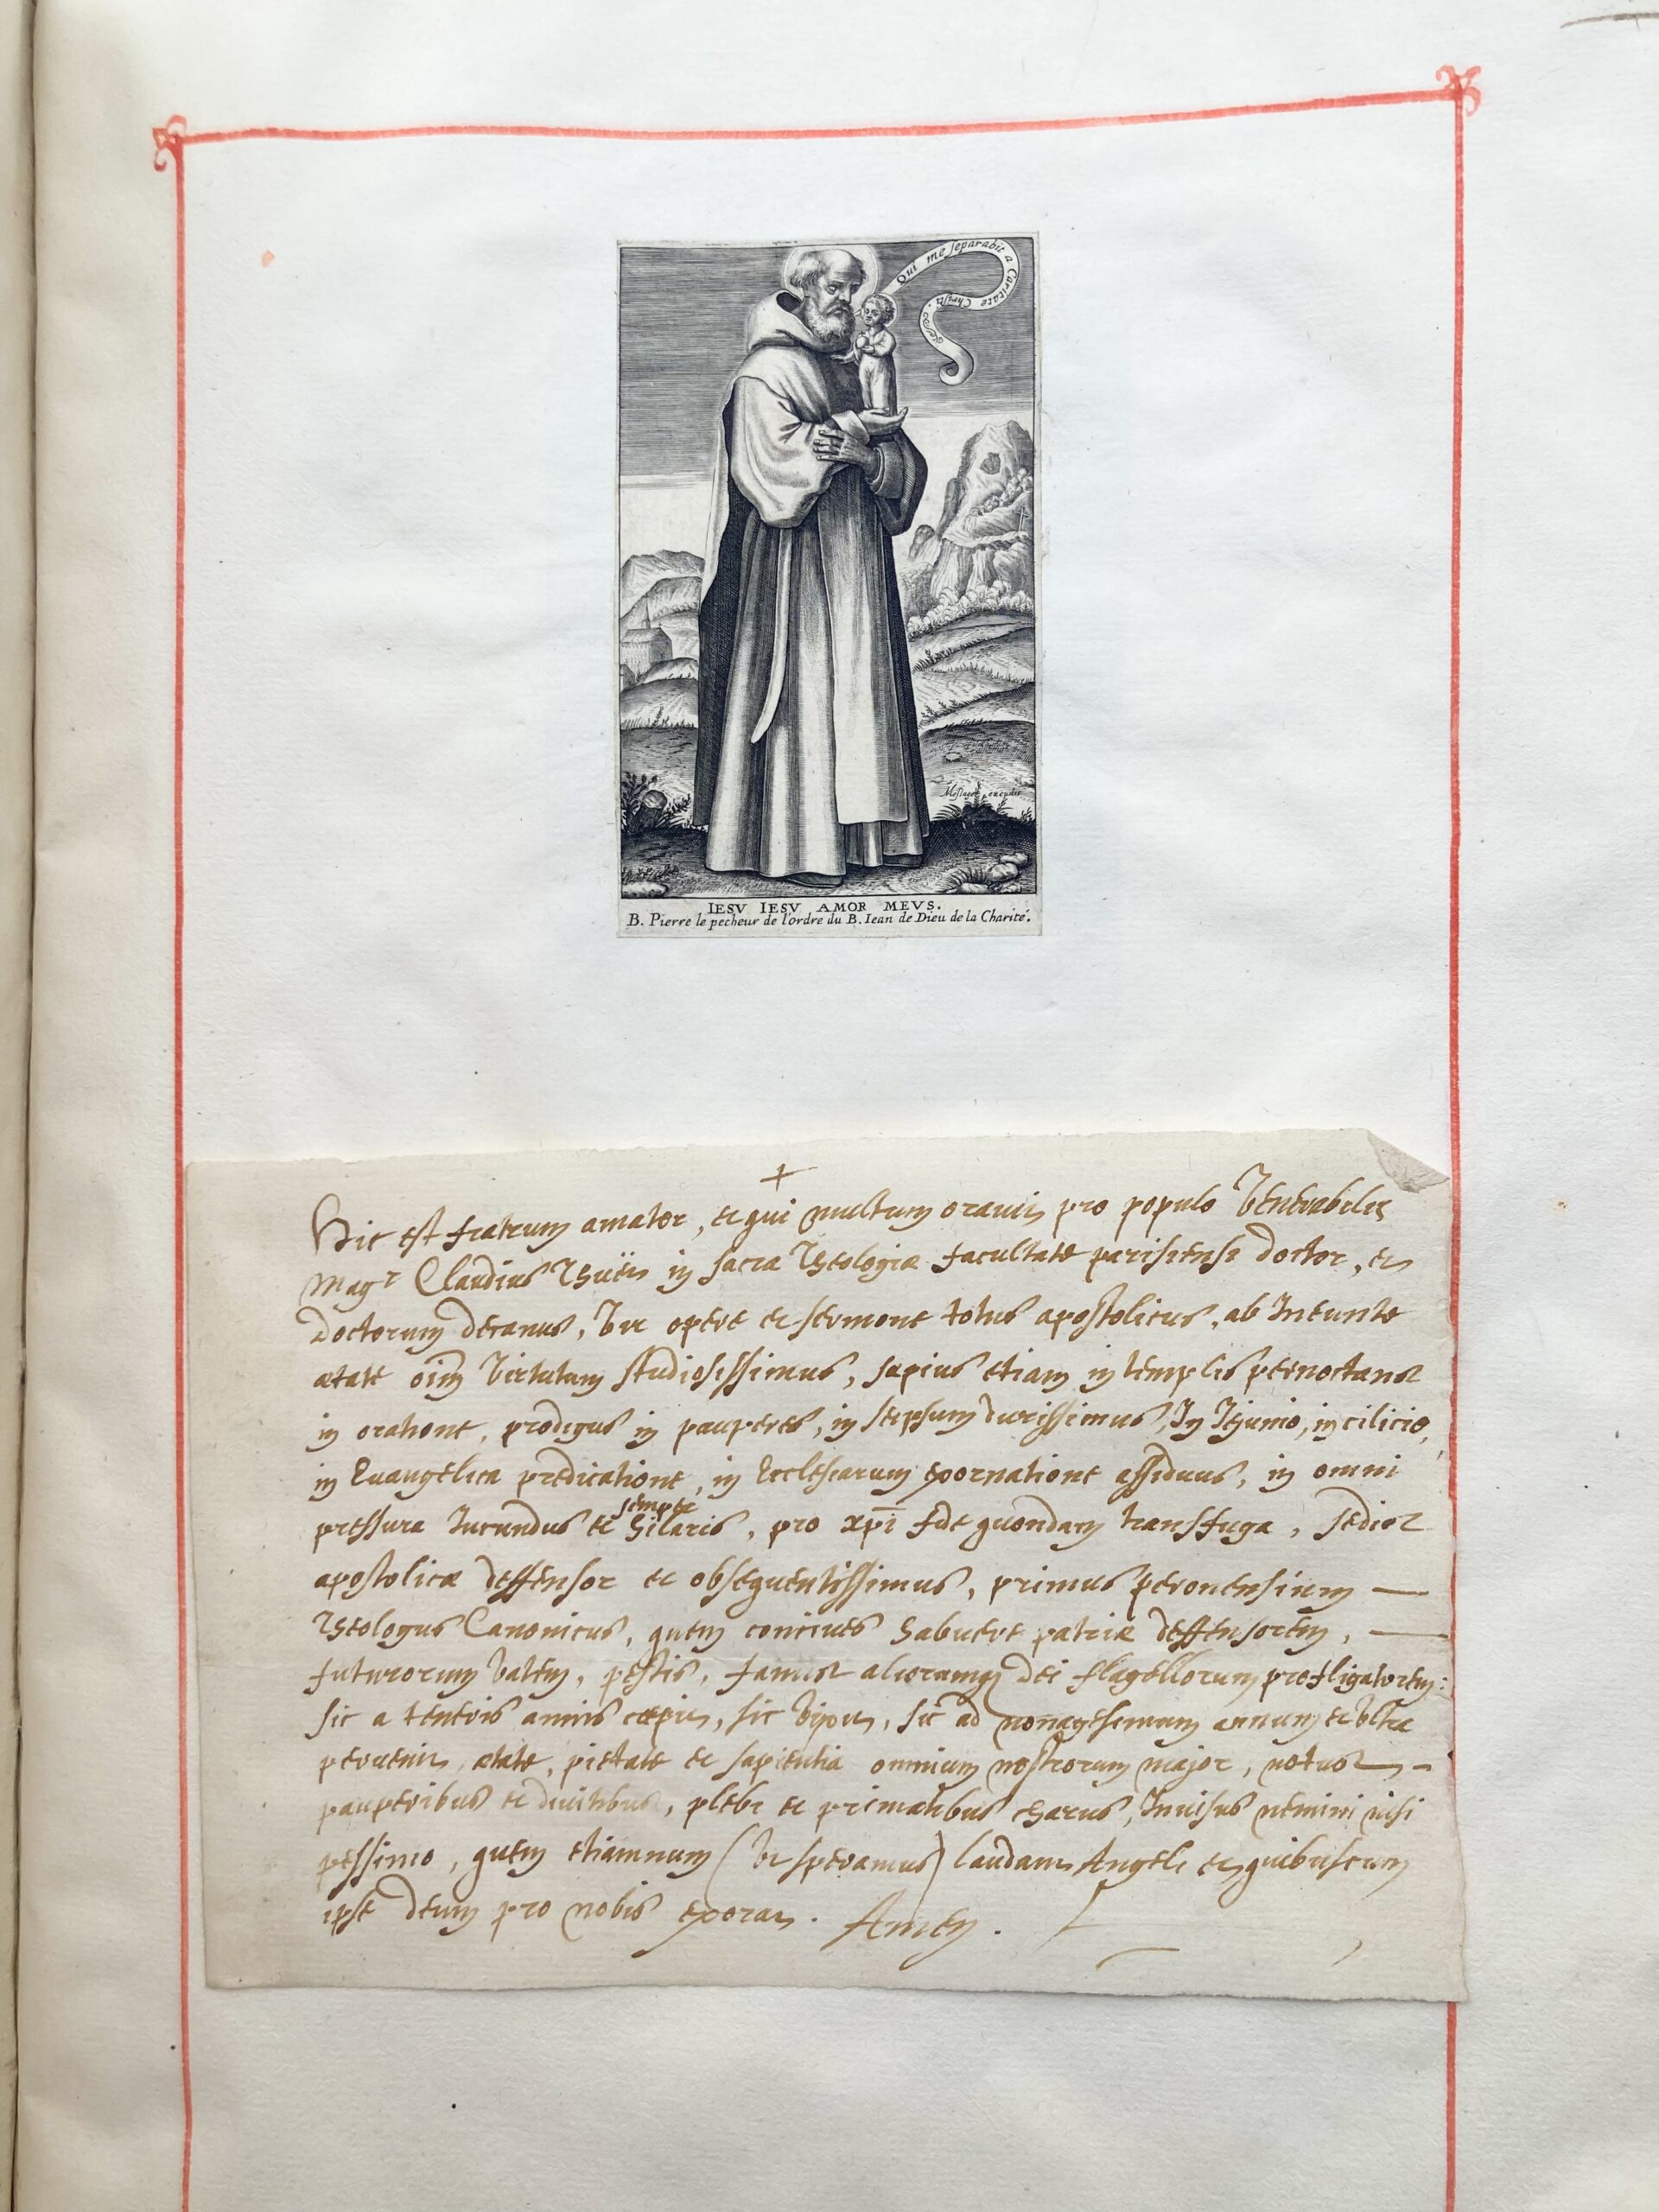 Qui me separabit a Caritate Christi
excudit
IESV IESV AMOR MEVS.
B. Pierre le pecheur de l'ordre du B. Iean de Dieu de la Charité.
+
Hic est fratrum amator, et qui multum orauit pro populo Venerabilis
Magr Claudius in sacra Theologiæ facultate parisiensi doctor, et
Doctorum decanus, Vir opere et sermone totus apostolicus, ab Ineunte
ætate oim Virtutum studiosissimus, sæpius etiam in templis pernoctans
in oratione, prodigus in pauperes, in seipsum durissimus, In Iejunio, in cilicio,
in Euangelica predicatione, in Ecclesiarum exornatione assiduus, in omni
semper
pressura Iucundus et hilaris, pro xpi fide quondam transfuga, sedis
apostolicæ deffensor et obsequentissimus, primus peronensium —
Theologus Canonicus, quem conciues habuere patriæ deffensorem, —
futurorum Vatem, pestis, famis aliorumq Dei flagellorum profligatorem:
sic a teneris annis cæpit, sic Vixit, sic ad nonagesimum annum et Vltra
peruenit, ætate, pietate et sapientia omnium nostrorum major, notus —
pauperibus et diuitibus, plebi et primatibus charus, Inuisus nemini nisi
pessimo, quem etiamnum (Vt speramus) laudant Angeli et quibuscum
ipse Deum pro nobis exorat. Amen.